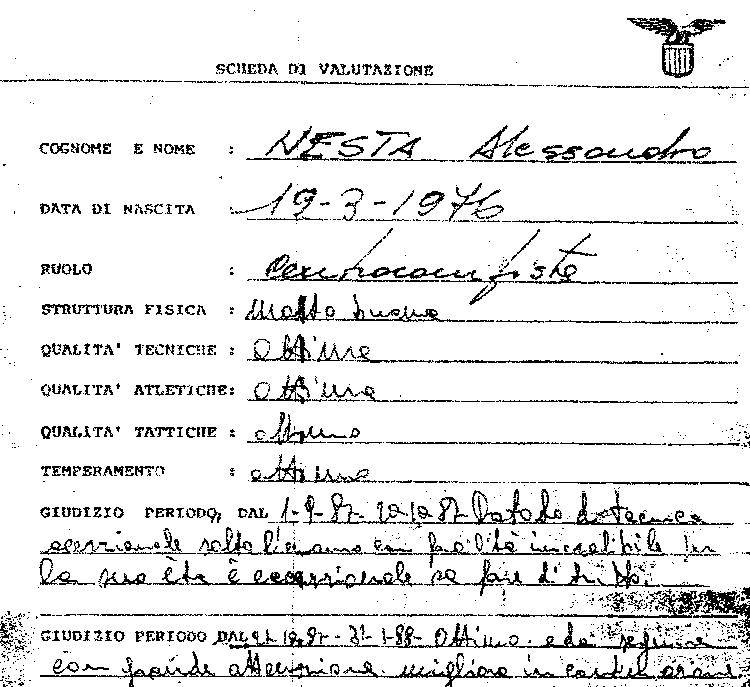 SCHEDA DI VALUTAZIONE
COGNOME E NOME : NESTA Alessandro
DATA DI NASCITA : 19-3-1976
RUOLO : Centrocampista
STRUTTURA FISICA : Molto buona
QUALITA' TECNICHE : Ottime
QUALITA' ATLETICHE: Ottime
QUALITA' TATTICHE : ottime
TEMPERAMENTO : ottimo
GIUDIZIO PERIODO, DAL 1-9-87- Dotato di tecnica
eccezionale salta l'uomo con facilità incredibile per
la sua età è eccezionale sa fare di tutto.
GIUDIZIO PERIODO DAL 31-1-88- Ottimo e da seguire
con grande attenzione migliora in